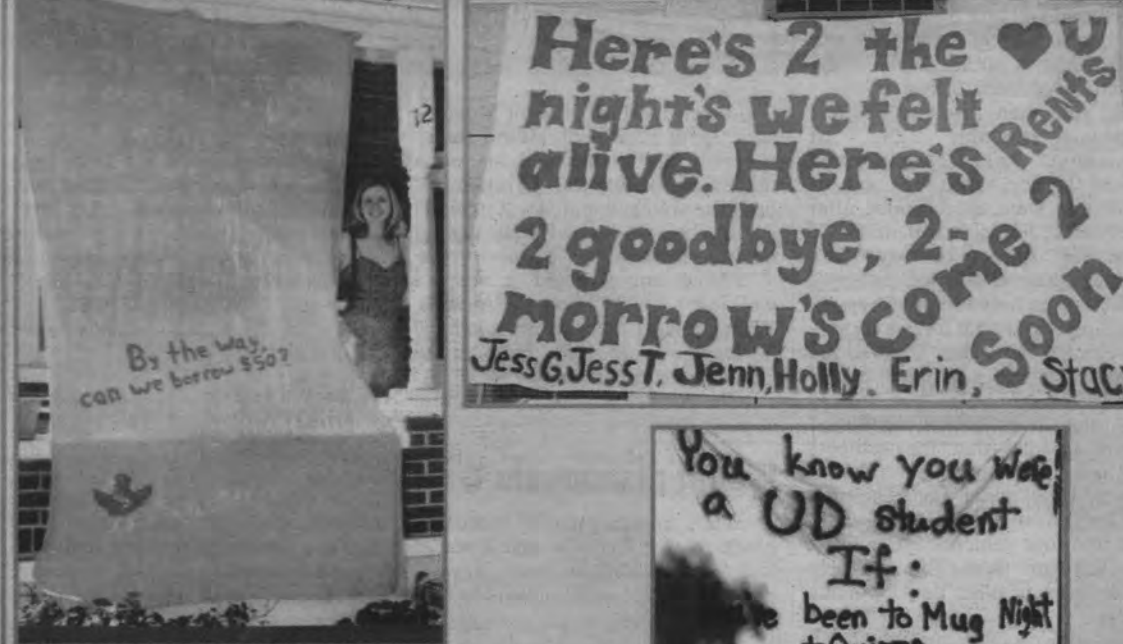 12
By the way,
can we borrow $50?
Here's 2 the ♥ U
night's we felt Rents
alive. Here's
2 goodbye, 2-
morrow's come 2
Soon
Jess G. Jess T. Jenn, Holly. Erin, Stac
You know you were
a UD student
If:
been to Mug Night